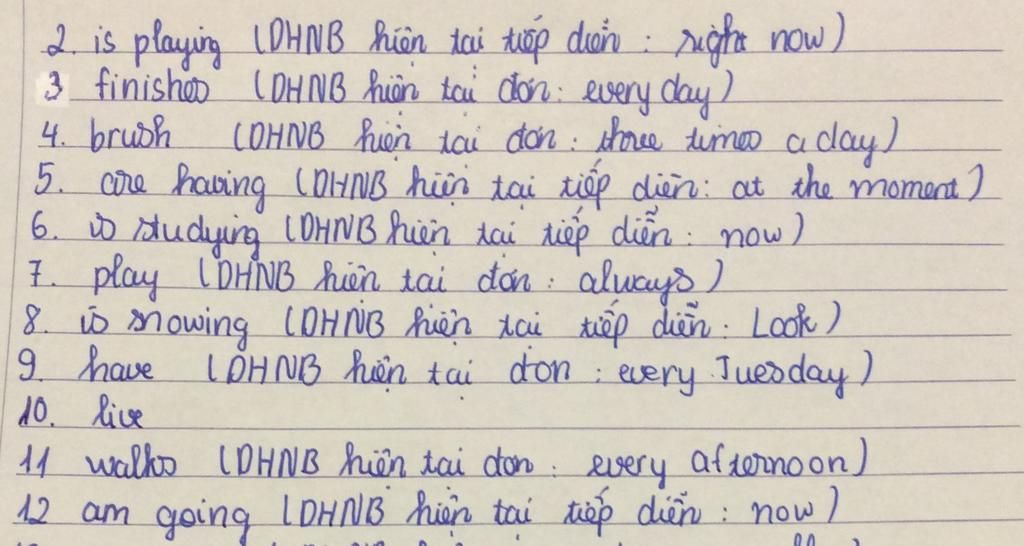 2. is playing (DHNB hiện tại tiếp diễn : right now)
3 finishes (DHNB hiện tại đơn : every day)
4. brush (DHNB hiện tại đơn : three times a day)
5. are having (DHNB hiện tại tiếp diễn : at the moment)
6. is studying (DHNB hiện tại tiếp diễn : now)
7. play (DHNB hiện tại đơn : always)
8. is snowing (DHNB hiện tại tiếp diễn : Look)
9. have (DHNB hiện tại đơn : every Tuesday)
10. live
11 walks (DHNB hiện tại đơn : every afternoon)
12 am going (DHNB hiện tại tiếp diễn : now)